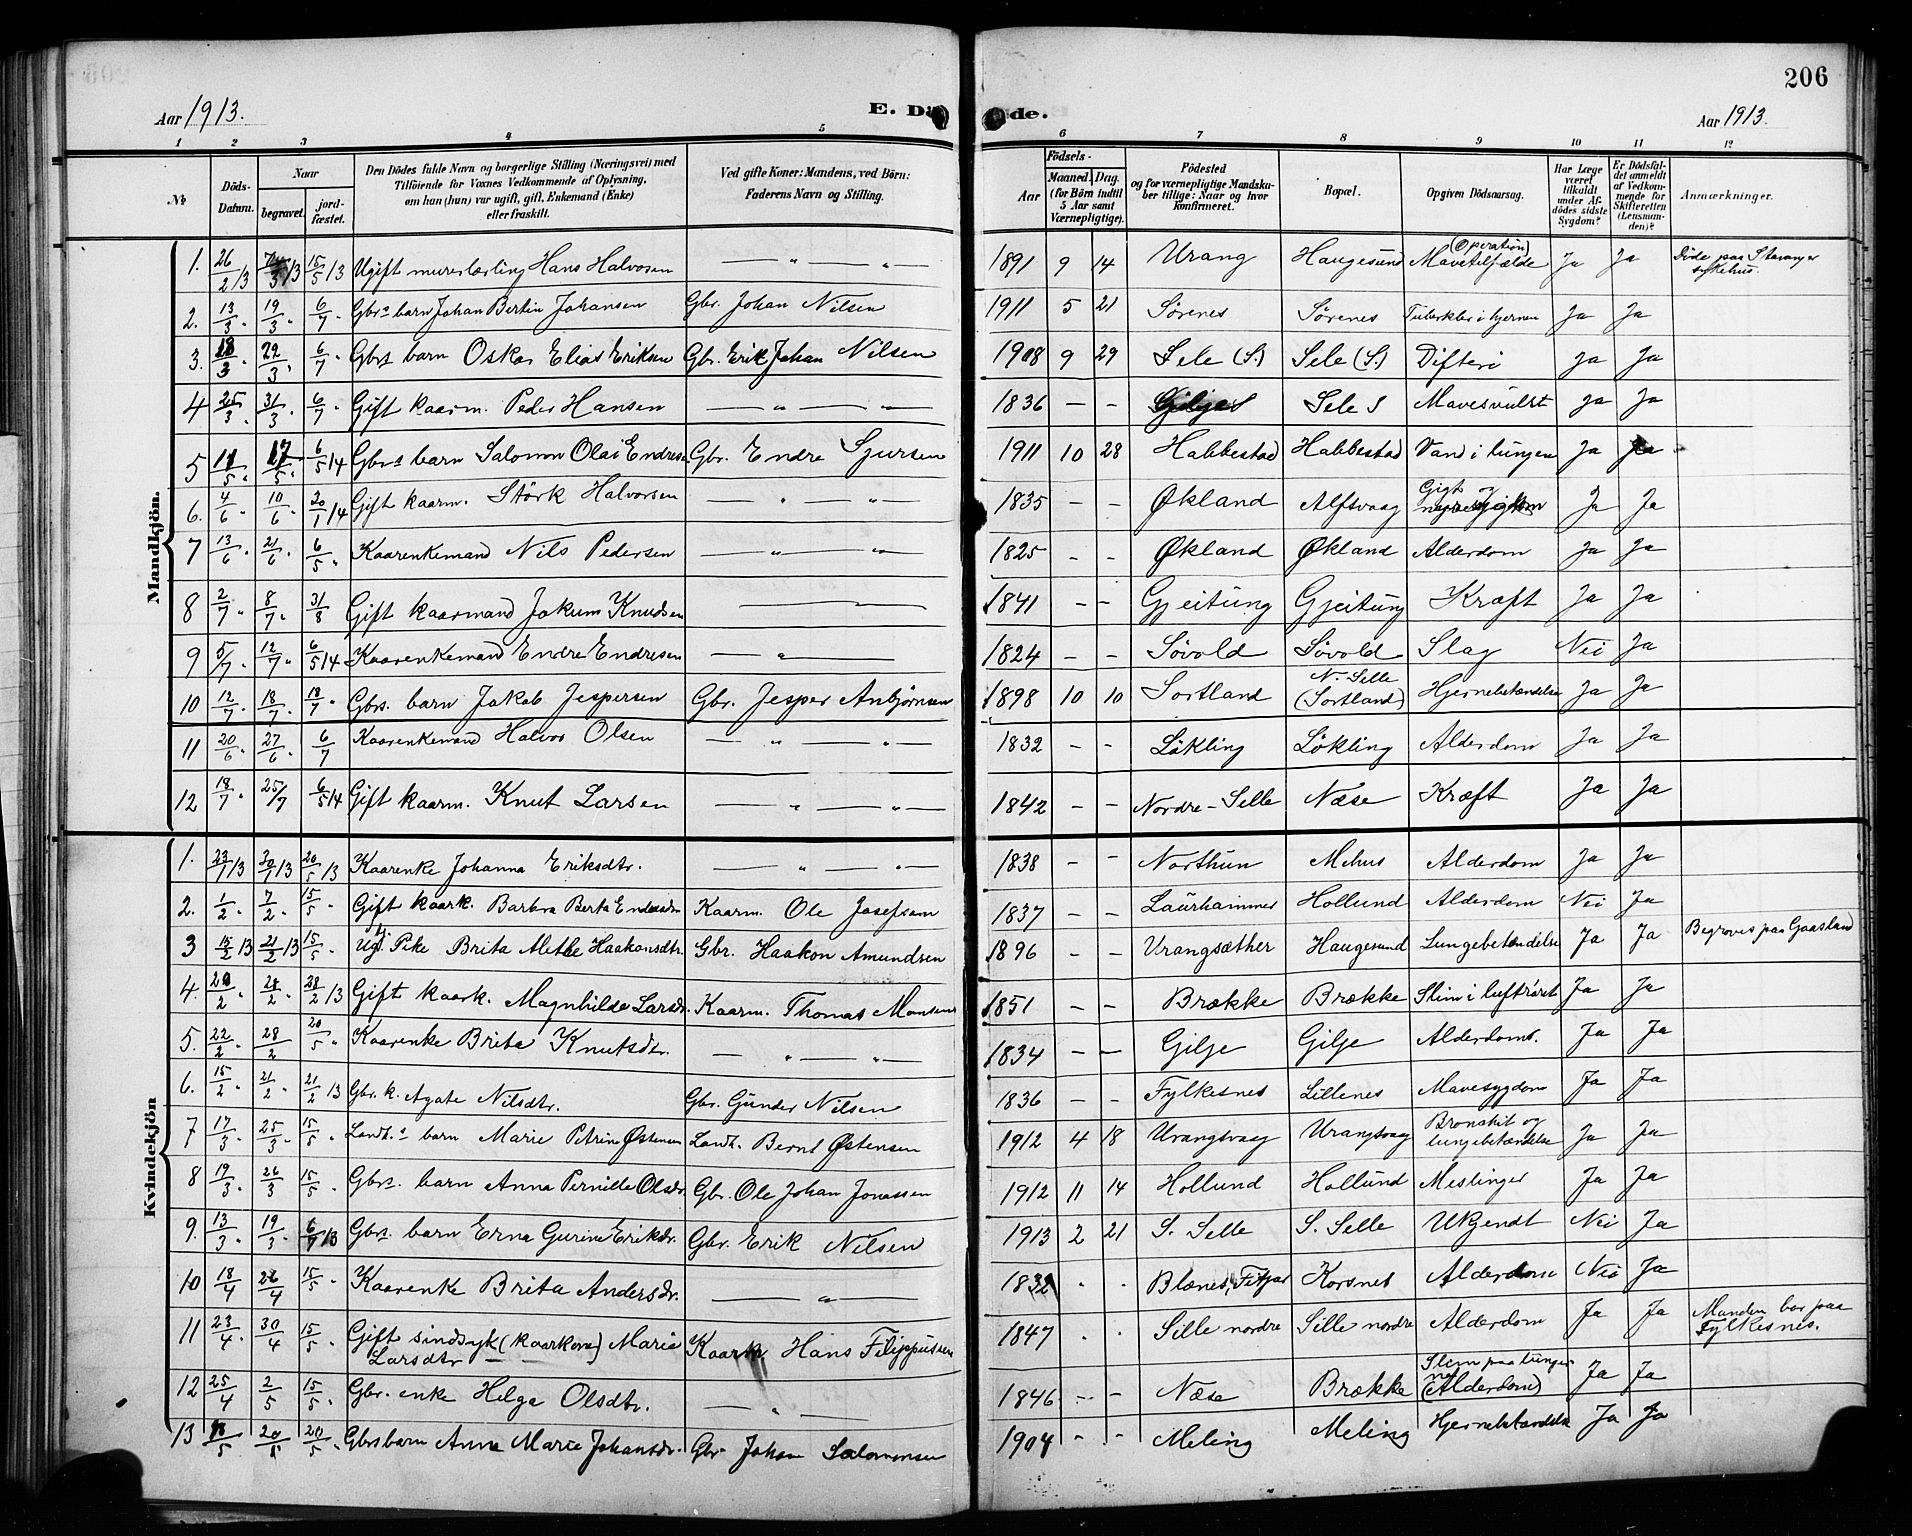 206
Aar 1913.
E. Dø
de.
Aar 1913.
1 2 3 4 5 6 7 8 9 10 11 12
№
Döds-Datum.
Naar
begravet.
jordfæstet.
Den Dödes fulde Navn og borgerlige Stilling (Næringsvei) med
Tilföiende for Voxnes Vedkommende af Oplysning,
om han (hun) var ugift, gift, Enkemand (Enke)
eller fraskilt.
Ved gifte Koner: Mandens, ved Börn:
Faderens Navn og Stilling.
Födsels-
Aar
Maaned. Dag.
(for Börn indtil
5 Aar samt
Værnepligtige).
Födested
og for værnepligtige Mandska-
ber tillige: Naar og hvor
konfirmeret.
Bopæl.
Opgiven Dödsaarsag.
Har Læge
været
tilkaldt
under Af-
dödes sidste
Sygdom?
Er Dödsfal-
det anmeldt
af Vedkom-
mende for
Skifteretten
(Lensman-
den)?
Anmærkninger.
Mandkjön.
1. 26/2 13 /3 13 15/5 13 Ugift murerlærling Hans Halvorsen — " — " — 1891 9 14 Urang Haugesund Mavetilfælde (Operation) Ja Ja Døde paa Stavanger sykehus.
2. 13/3 " 19/3 " 6/7 " Gbrs barn Johan Bertin Johansen Gbr. Johan Nilsen 1911 5 21 Sørenes Sørenes Tuberkler i hjernen Ja Ja
3. 18/3 22/3 " 6/7 " Gbrs barn Oskar Elias Eriksen Gbr. Erik Johan Nilsen 1908 9 29 Sele (S.) Sele (S.) Difteri Ja Ja
4 25/3 " 31/3 " 6/7 " Gift kaarm. Peder Hansen — " — " 1836 — — Sele S Mavesvulst Ja Ja
5 11/5 " 17/5 " 6/5 14 Gbrs barn Salomon Olai Endresen Gbr. Endre Sjursen 1911 10 28 Habbestad Habbestad Vand i lungen Ja Ja
6. 4/6 " 10/6 " 20/1 14 Gift kaarm. Störk Halvorsen — " — " 1835 - - Økland Alfsvaag Gigt og nyresygdom Ja Ja
7 13/6 21/6 " 6/5 " Kaarenkemand Nils Pedersen — " — " 1825 - - Økland Økland Alderdom Ja Ja
8 2/7 " 8/7 " 31/8 Gift kaarmand Jokum Knudsen — — — 1841 - - Gjeitung Gjeitung Kræft Ja Ja
9 5/7 " 12/7 " 6/5 14 Kaarenkemand Endre Endresen — " — 1824 - - Søvold Søvold Slag Nei Ja
10 12/7 " 18/7 " 18/7 " Gbrs. barn Jakob Jespersen Gbr. Jesper Anbjørnsen 1898 10 10 Sortland N. Selle (Sortland) Hjernebetændelse Ja Ja
11 20/6 " 27/6 " 6/7 Kaarenkemand Halvor Olsen — " — " — 1832 - - Løkling Løkling Alderdom Ja Ja
12 18/7 " 25/7 6/5 14 Gift kaarm. Knut Larsen — " — " — 1842 - - Nordre-Selle Næse Kræft Ja Ja
Kvindekjön
1. 23/1 13 30/1 13 20/5 13 Kaarenke Johanna Eriksdtr. — " — " 1838 - - Northun Mehus Alderdom Ja Ja
2. 1/2 " 7/2 " 15/5 " Gift kaark. Barbra Berta Endresdtr Kaarm. Ole Josefsøn 1837 - - Laurhammer Hollund Alderdom Nei Ja
3 15/2 13 21/2 13 15/5 " Ugift Pike Brita Alethe Haakonsdtr. Gbr. Haakon Amundsen 1896 - - Urangsæther Haugesund Lungebetændelse Ja Ja Begraves paa Gaasland
4. 20/2 " 28/2 " 28/2 13 Gift kaark. Magnhilde Larsdr. Kaarm. Thomas Monsens 1851 - - Brække Brække Slim i luftrøret Ja Ja
5. 22/2 " 28/2 20/5 " Kaarenke Brita Knutsdtr. — " — " — 1834 - - Gilje Gilje Alderdoms. Ja Ja
6. 15/2 " 21/2 " 21/2 13 Gbr. k. Agate Nilsdtr. Gbr. Gunder Nilsen 1836 - - Fylkesnes Lillenes Mavesygdom Ja Ja
7 17/3 " 25/3 " 15/5 " Landh.s barn Marie Petrine Østensen Landh. Bernt Østensen 1912 4 18 Urangsvaag Urangsvaag Bronskit og lungebetændelse Ja Ja
8 19/3 " 26/3 15/5 " Gbrs. barn Anna Pernille Olsdr. Gbr. Ole Johan Jonassen 1912 11 14 Hollund Hollund Meslinger Ja Ja
9. 13/3 " 19/3 " 6/7 13 Gbrs. barn Erna Gurine Eriksdr. Gbr. Erik Nilsen 1913 2 21 S. Selle S. Selle Ukjendt Nei Ja
10 18/4 26/4 15/5 " Kaarenke Brita Andersdr. — " — 1832 " " Blænes, Fitjar Korsnes Alderdom Nei Ja
11 23/4 30/4 15/5 " Gift sindsyk (kaarkone) Maria Larsdtr — Kaarm Hans Filippussen 1847 " " Sille nordre Sille nordre Alderdom Ja Ja Manden bor paa Fylkesnes.
12 25/4 2/5 15/5 " Gbr. enke Helga Olsdtr. — " — 1846 - - Næse Brække Slem paa lungerne (Alderdom) Ja Ja
13 /5 20/5 20/5 " Gbrs barn Anna Marie Johansdr. Gbr Johan Salomonsen 1904 - - Meling Meling Hjernebetændelse Ja Ja